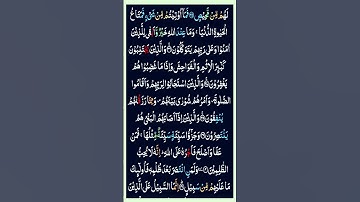 لَهُمْ مِّنْ مَّحِيْصٍ ۝ فَمَآ اُوْتِيْتُمْ مِّنْ شَيْءٍ فَمَتَاعُ
الْحَيٰوةِ الدُّنْيَا ۚ وَمَا عِنْدَ اللّٰهِ خَيْرٌ وَّاَبْقٰى لِلَّذِيْنَ
اٰمَنُوْا وَعَلٰى رَبِّهِمْ يَتَوَكَّلُوْنَ ۝ وَالَّذِيْنَ يَجْتَنِبُوْنَ
كَبٰٓئِرَ الْاِثْمِ وَالْفَوَاحِشَ وَاِذَا مَا غَضِبُوْا هُمْ
يَغْفِرُوْنَ ۝ وَالَّذِيْنَ اسْتَجَابُوْا لِرَبِّهِمْ وَاَقَامُوا
الصَّلٰوةَ ۪ وَاَمْرُهُمْ شُوْرٰى بَيْنَهُمْ ۪ وَمِمَّا رَزَقْنٰهُمْ
يُنْفِقُوْنَ ۝ وَالَّذِيْنَ اِذَآ اَصَابَهُمُ الْبَغْيُ هُمْ
يَنْتَصِرُوْنَ ۝ وَجَزٰٓؤُا سَيِّئَةٍ سَيِّئَةٌ مِّثْلُهَا ۚ فَمَنْ
عَفَا وَاَصْلَحَ فَاَجْرُهٗ عَلَى اللّٰهِ ؕ اِنَّهٗ لَا يُحِبُّ
الظّٰلِمِيْنَ ۝ وَلَمَنِ انْتَصَرَ بَعْدَ ظُلْمِهٖ فَاُولٰٓئِكَ
مَا عَلَيْهِمْ مِّنْ سَبِيْلٍ ۝ اِنَّمَا السَّبِيْلُ عَلَى الَّذِيْنَ